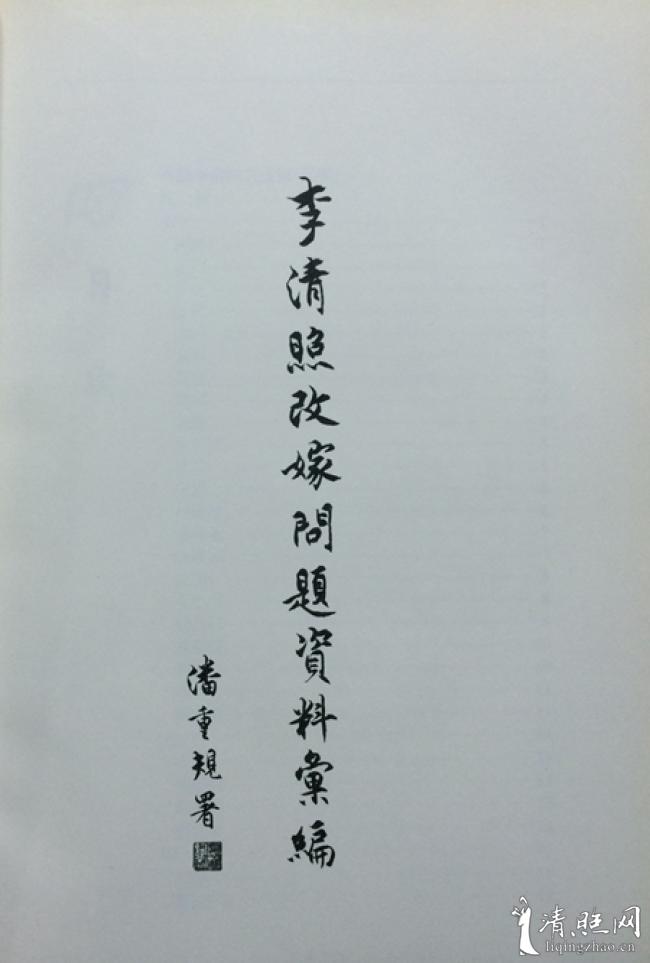 李清照改嫁問題資料彙編
潘重規署
清照网
liqingzhao.cn